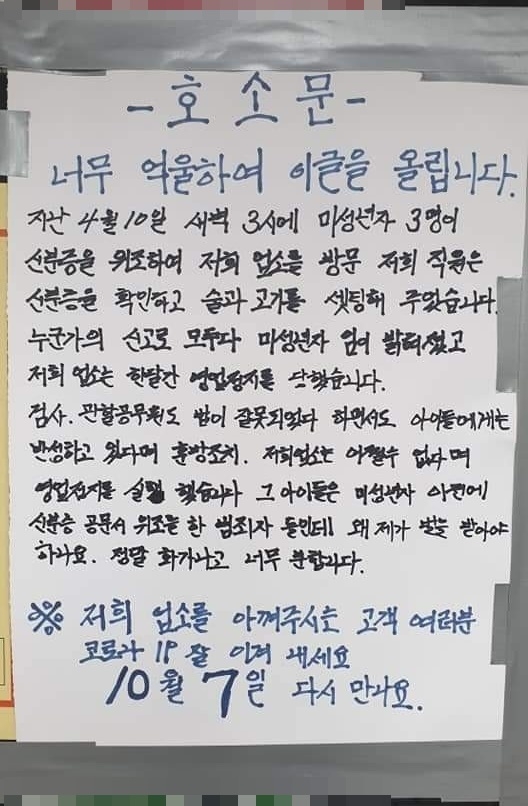 -호소문-
너무 억울하여 이글을 올립니다.
지난 4월 10일 새벽 3시에 미성년자 3명이
신분증을 위조하여 저희 업소를 방문 저희 직원은
신분증을 확인하고 술과 고기를 셋팅해 주었습니다.
누군가의 신고로 모두다 미성년자 임이 밝혀졌고
저희 업소는 한달간 영업정지를 당했습니다.
검사. 관할공무원도 법이 잘못되었다 하면서도 아이들에게는
반성하고 있다며 훈방조치. 저희업소는 어쩔수 없다며
영업정지를 실행 했습니다 그 아이들은 미성년자 이전에
신분증 공문서 위조를 한 범죄자 들인데! 왜 제가 벌을 받아야
하나요. 정말 화가나고 너무 분합니다.
※ 저희 업소를 아껴주시는 고객 여러분
코로나 19 잘 이겨 내세요
10월 7일 다시 만나요.